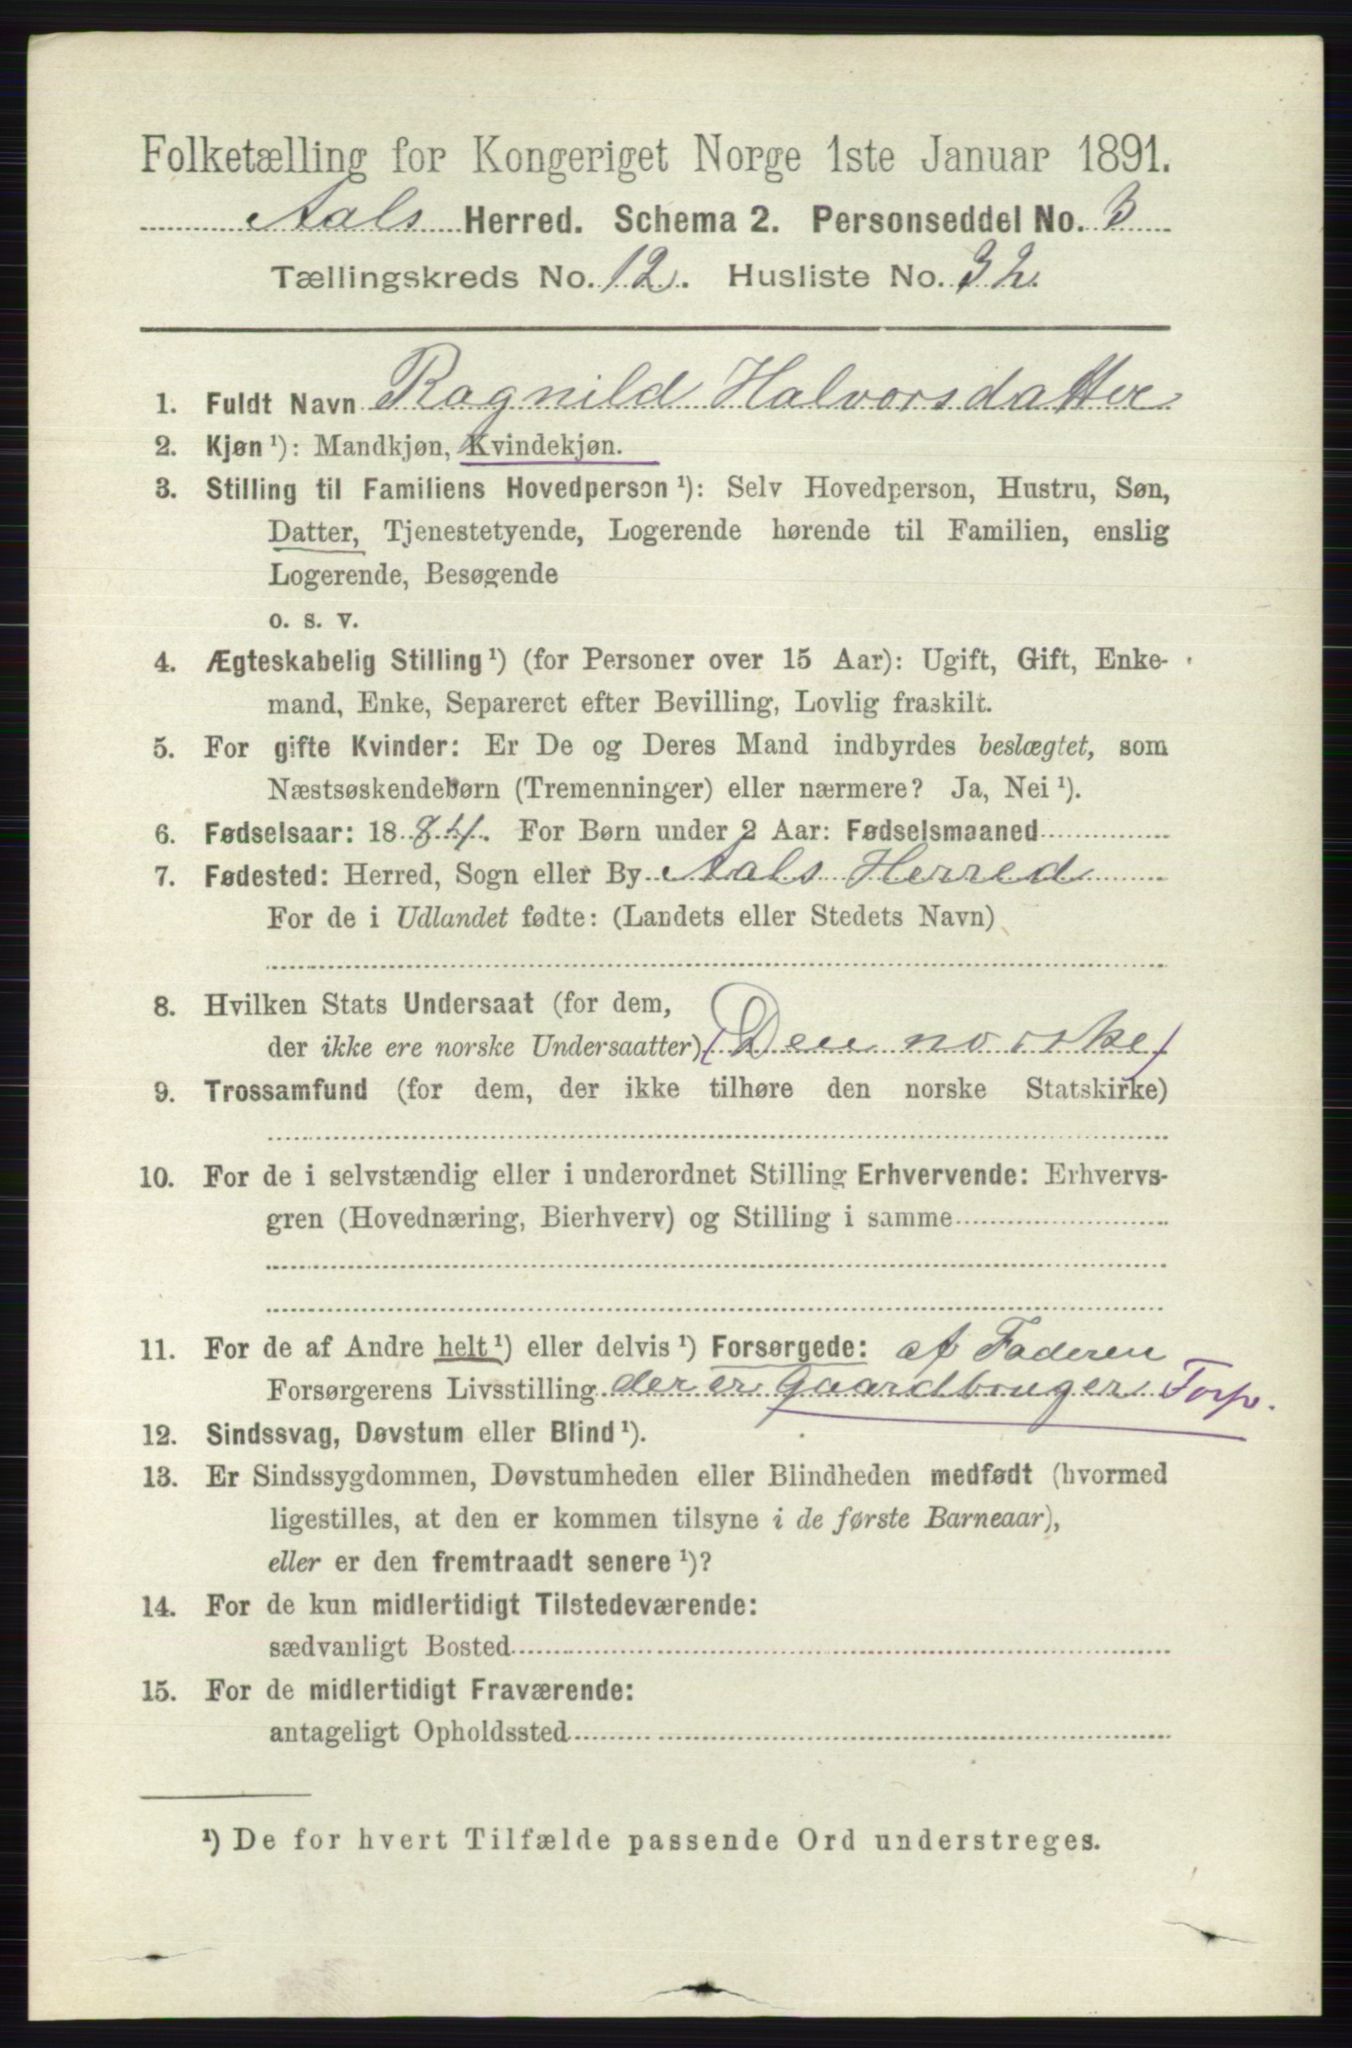 Folketælling for Kongeriget Norge 1ste Januar 1891.
Aals Herred. Schema 2. Personseddel No. 3
Tællingskreds No. 12. Husliste No. 32.
1. Fuldt Navn Ragnild Halvorsdatter
2. Kjøn ¹): Mandkjøn, Kvindekjøn.
3. Stilling til Familiens Hovedperson ¹): Selv Hovedperson, Hustru, Søn,
Datter, Tjenestetyende, Logerende hørende til Familien, enslig
Logerende, Besøgende
o. s. v.
4. Ægteskabelig Stilling ¹) (for Personer over 15 Aar): Ugift, Gift, Enke-
mand, Enke, Separeret efter Bevilling, Lovlig fraskilt.
5. For gifte Kvinder: Er De og Deres Mand indbyrdes beslægtet, som
Næstsøskendebørn (Tremenninger) eller nærmere? Ja, Nei ¹).
6. Fødselsaar: 1884. For Børn under 2 Aar: Fødselsmaaned
7. Fødested: Herred, Sogn eller By Aals Herred
For de i Udlandet fødte: (Landets eller Stedets Navn)
8. Hvilken Stats Undersaat (for dem,
der ikke ere norske Undersaatter) (Den norske)
9. Trossamfund (for dem, der ikke tilhøre den norske Statskirke)
10. For de i selvstændig eller i underordnet Stilling Erhvervende: Erhvervs-
gren (Hovednæring, Bierhverv) og Stilling i samme
11. For de af Andre helt ¹) eller delvis ¹) Forsørgede: af Faderen
Forsørgerens Livsstilling der er Gaardbruger Torp.
12. Sindssvag, Døvstum eller Blind ¹).
13. Er Sindssygdommen, Døvstumheden eller Blindheden medfødt (hvormed
ligestilles, at den er kommen tilsyne i de første Barneaar),
eller er den fremtraadt senere ¹)?
14. For de kun midlertidigt Tilstedeværende:
sædvanligt Bosted
15. For de midlertidigt Fraværende:
antageligt Opholdssted
¹) De for hvert Tilfælde passende Ord understreges.